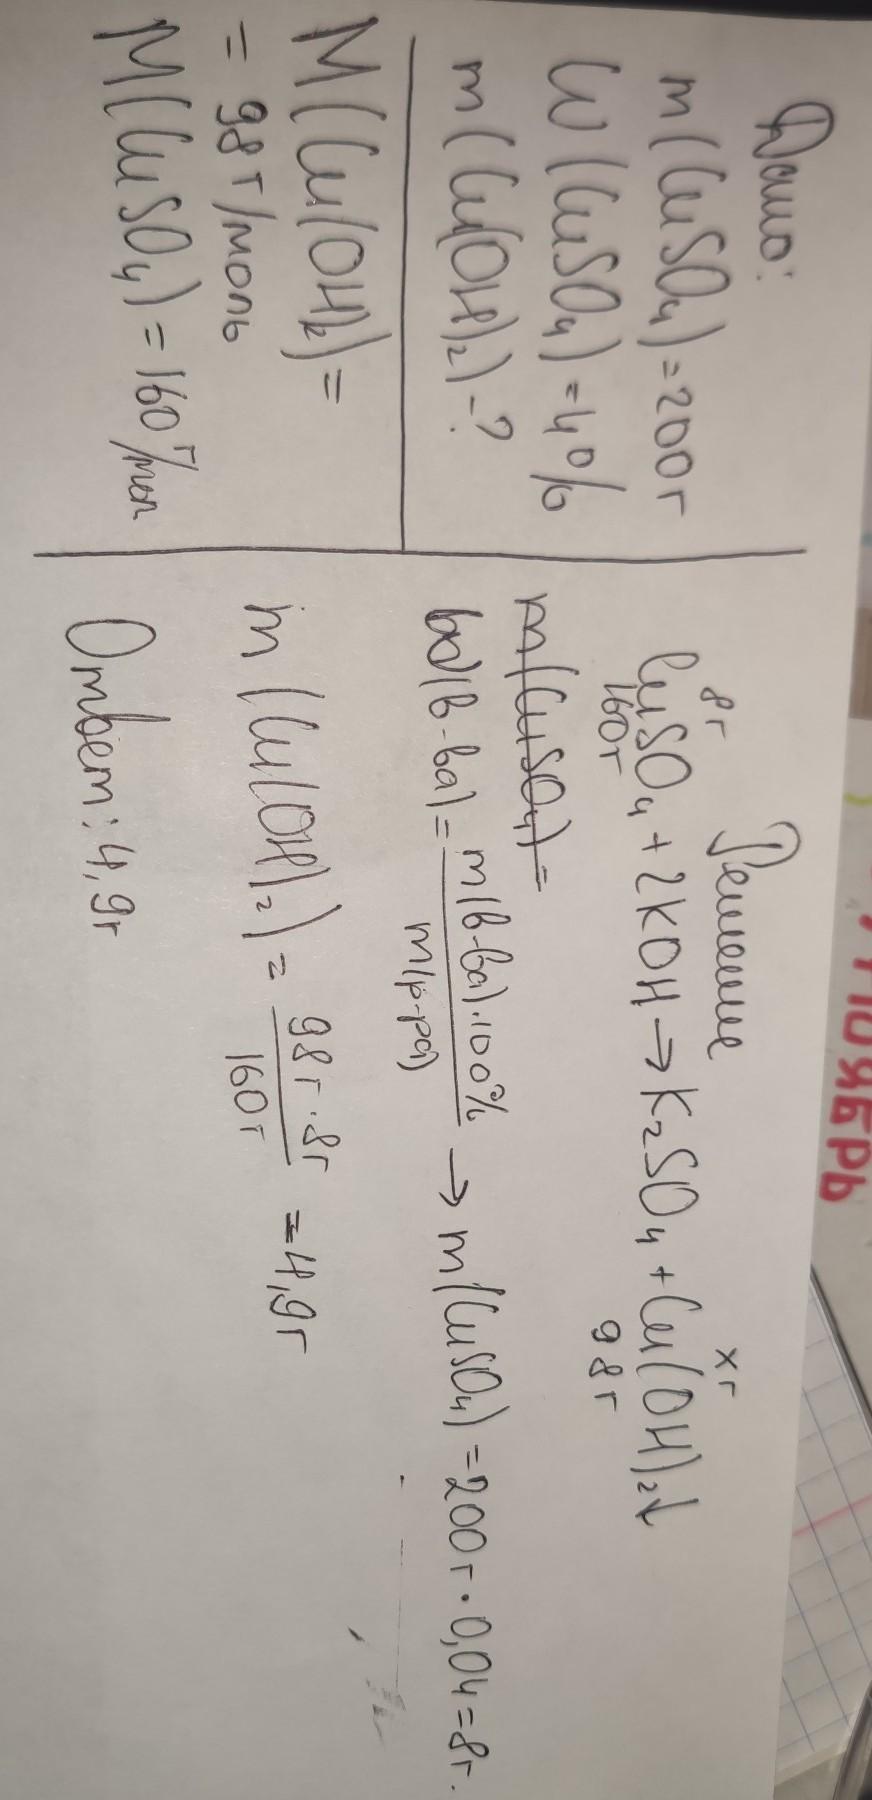 Дано:
m(CuSO₄)=200г
W(CuSO₄)=4%
m(Cu(OH)₂)-?
M(Cu(OH)₂)=
=98г/моль
M(CuSO₄)=160г/мол
Решение
8г xг
CuSO₄+2KOH→K₂SO₄+Cu(OH)₂↓
160г 98г
m(CuSO₄)=
W(в-ва)=m(в-ва)·100%/m(р-ра) → m(CuSO₄)=200г·0,04=8г.
m(Cu(OH)₂)=98г·8г/160г=4,9г
Ответ: 4,9г